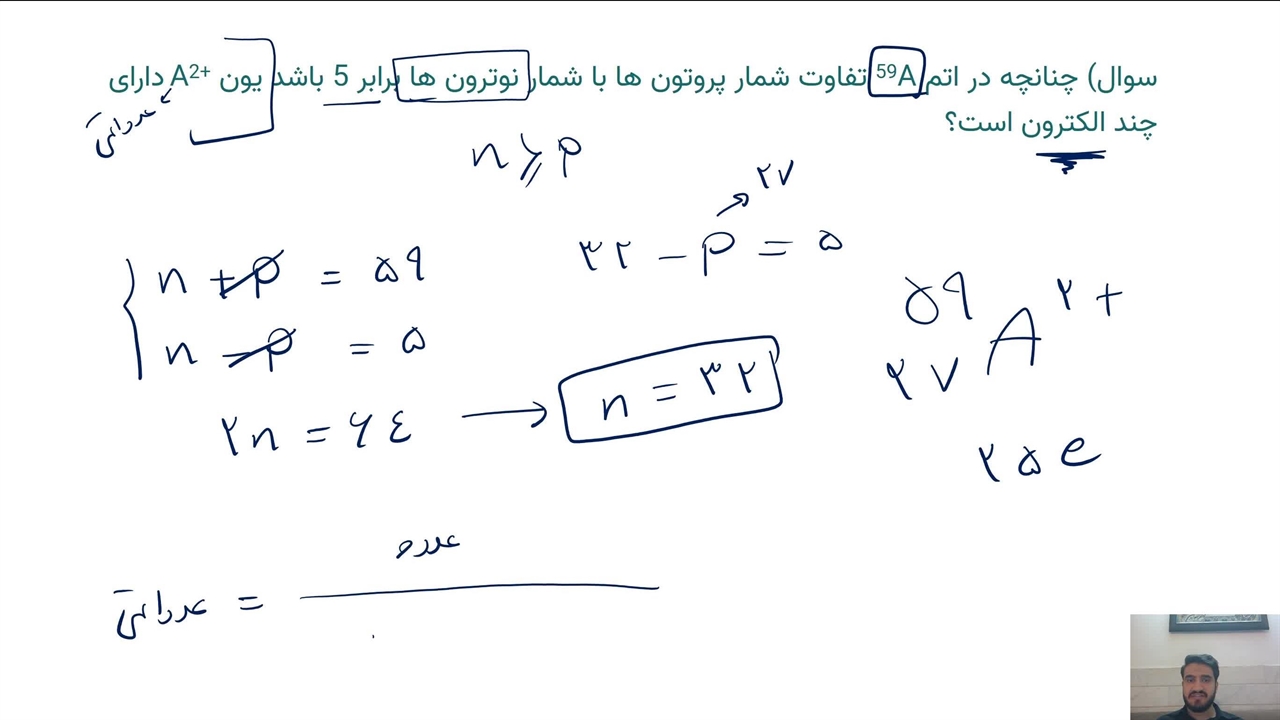 سوال) چنانچه در اتم ⁵⁹A تفاوت شمار پروتون ها با شمار نوترون ها برابر 5 باشد یون A²⁺ دارای
چند الکترون است؟
عدد اتمی
n ⩾ p
۲۷
n + p = ۵۹
۳۲ - p = ۵
n - p = ۵
۵۹ A ۲+
۲۷
۲n = ۶۴ → n = ۳۲
۲۵ e
عدد
عدد اتمی =